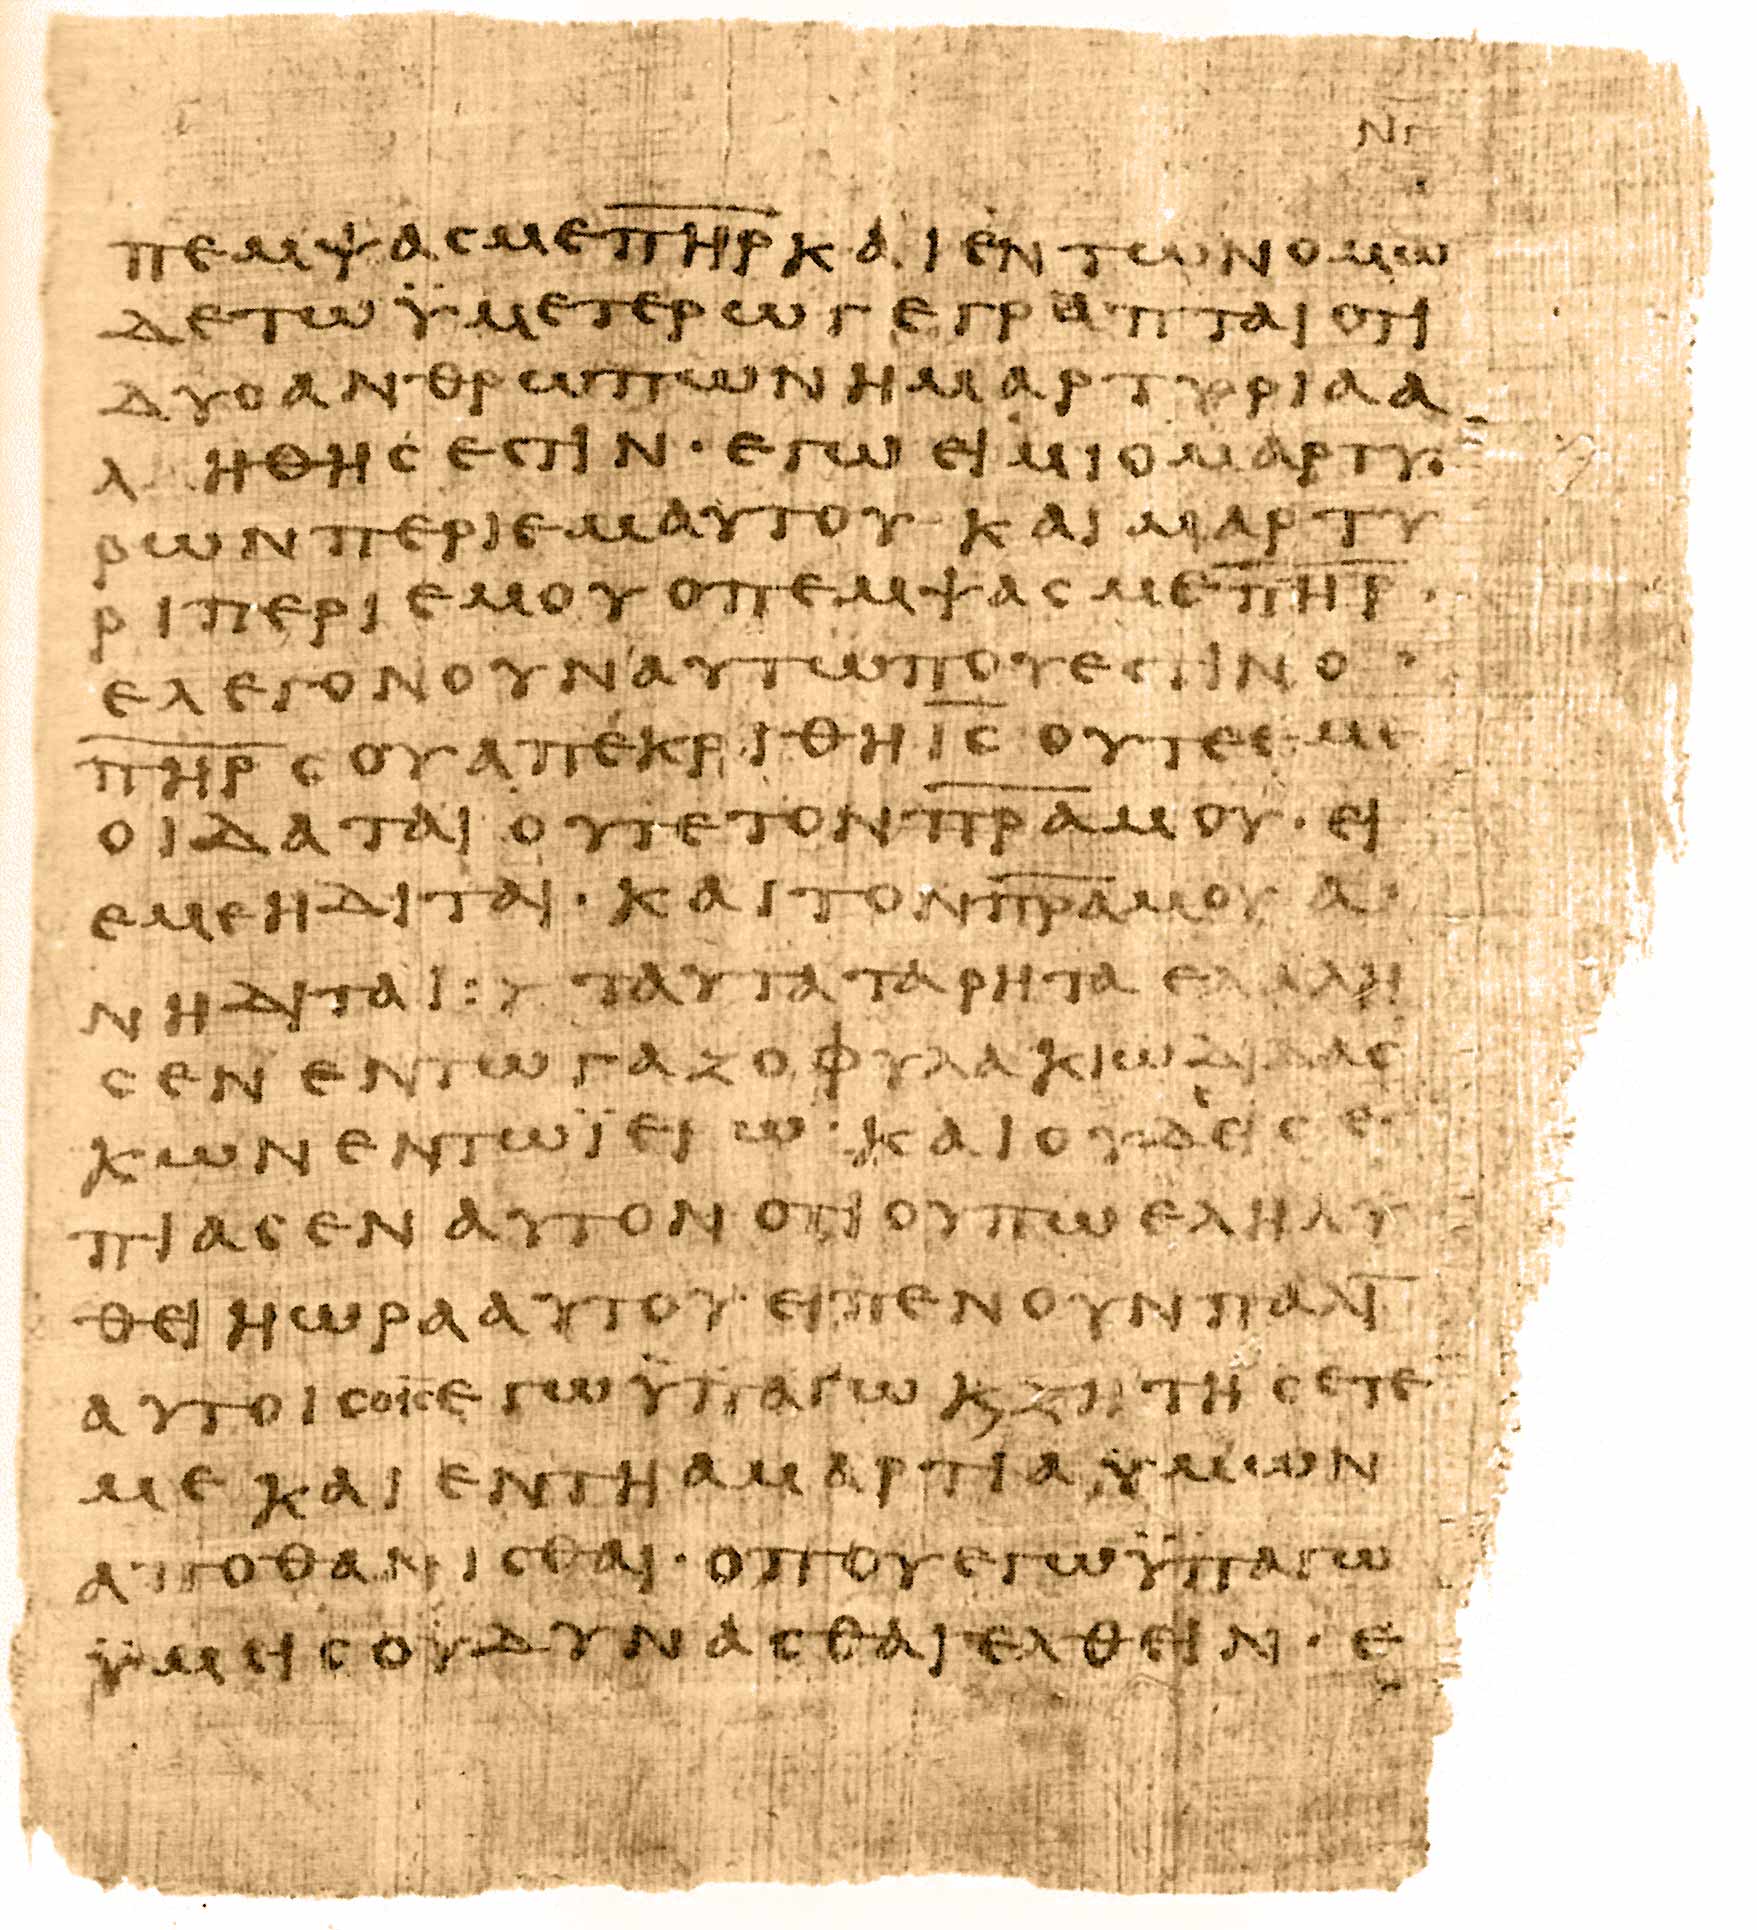 ΝΓ
ΠΕΜΨΑϹΜΕΠΗΡ̅ΚΑΙΕΝΤΩΝΟΜΩ
ΔΕΤΩΫΜΕΤΕΡΩΓΕΓΡΑΠΤΑΙΟΤΙ
ΔΥΟΑΝΘΡΩΠΩΝΗΜΑΡΤΥΡΡΙΑΑ
ΛΗΘΗϹΕϹΤΙΝ·ΕΓΩΕΙΜΙΟΜΑΡΤΥ
ΡΩΝΠΕΡΙΕΜΑΥΤΟΥΚΑΙΜΑΡΤΥ
ΡΙΠΕΡΙΕΜΟΥΟΠΕΜΨΑϹΜΕΠΗΡ̅·
ΕΛΕΓΟΝΟΥΝΑΥΤΩΠΟΥΕϹΤΙΝΟ
ΠΗΡ̅ϹΟΥΑΠΕΚΡΙΘΗΙϹ̅ΟΥΤΕΕΜΕ
ΟΙΔΑΤΑΙΟΥΤΕΤΟΝΠΡΑ̅ΜΟΥ·ΕΙ
ΕΜΕΗΔΙΤΑΙ·ΚΑΙΤΟΝΠΡΑ̅ΜΟΥΑ
ΝΗΔΙΤΑΙ:ΤΑΥΤΑΤΑΡΗΤΑΕΛΑΛΗ
ϹΕΝΕΝΤΩΓΑΖΟΦΥΛΑΚΙΩΔΙΔΑϹ
ΚΩΝΕΝΤΩΪΕΙΩ·ΚΑΙΟΥΔΕΙϹΕ
ΠΙΑϹΕΝΑΥΤΟΝΟΤΙΟΥΠΩΕΛΗΛΥ
ΘΕΙΗΩΡΑΑΥΤΟΥ·ΕΙΠΕΝΟΥΝΠΑΛΙ̅
ΑΥΤΟΙϹΟΙϹΕΓΩΫΠΑΓΩΚΖΗΤΗϹΕΤΕ
ΜΕΚΑΙΕΝΤΗΑΜΑΡΤΙΑΫΜΩΝ
ΑΠΟΘΑΝΙϹΘΑΙ·ΟΠΟΥΕΓΩΫΠΑΓΩ
ΫΜΕΙϹΟΥΔΥΝΑϹΘΑΙΕΛΘΕΙΝ·Ε